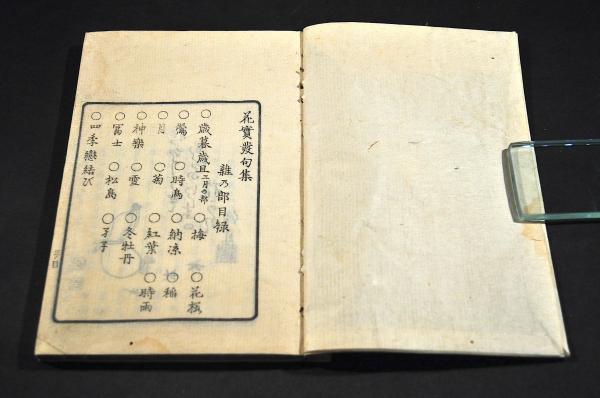 花實叢句集
雜乃部目録
○歳暮歳旦二月の部 ○梅 ○花桜
○鶯 ○時鳥 ○納涼 ○稲
○月 ○菊 ○紅葉 ○時雨
○神樂 ○雪 ○冬牡丹
○冨士 ○松島
○四季戀結び